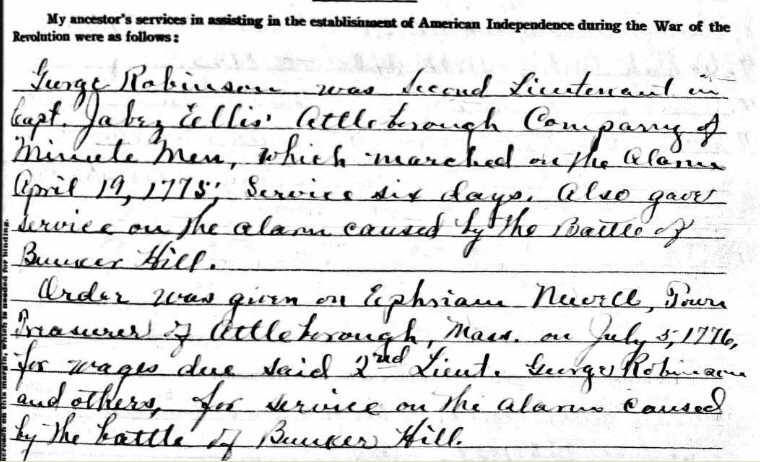 My ancestor's services in assisting in the establishment of American Independence during the War of the
Revolution were as follows:
George Robinson was Second Lieutenant in
Capt. Jabez Ellis' Attleborough Company of
Minute Men, which marched on the Alarm
April 19, 1775; Service six days. Also gave
service on the alarm caused by the Battle of
Bunker Hill.
Order was given on Ephriam Newell, Town
Treasurer of Attleborough, Mass. on July 5, 1776,
for wages due said 2nd Lieut. George Robinson
and others, for service on the alarm caused
by the battle of Bunker Hill.
this margin, which is needed for binding.